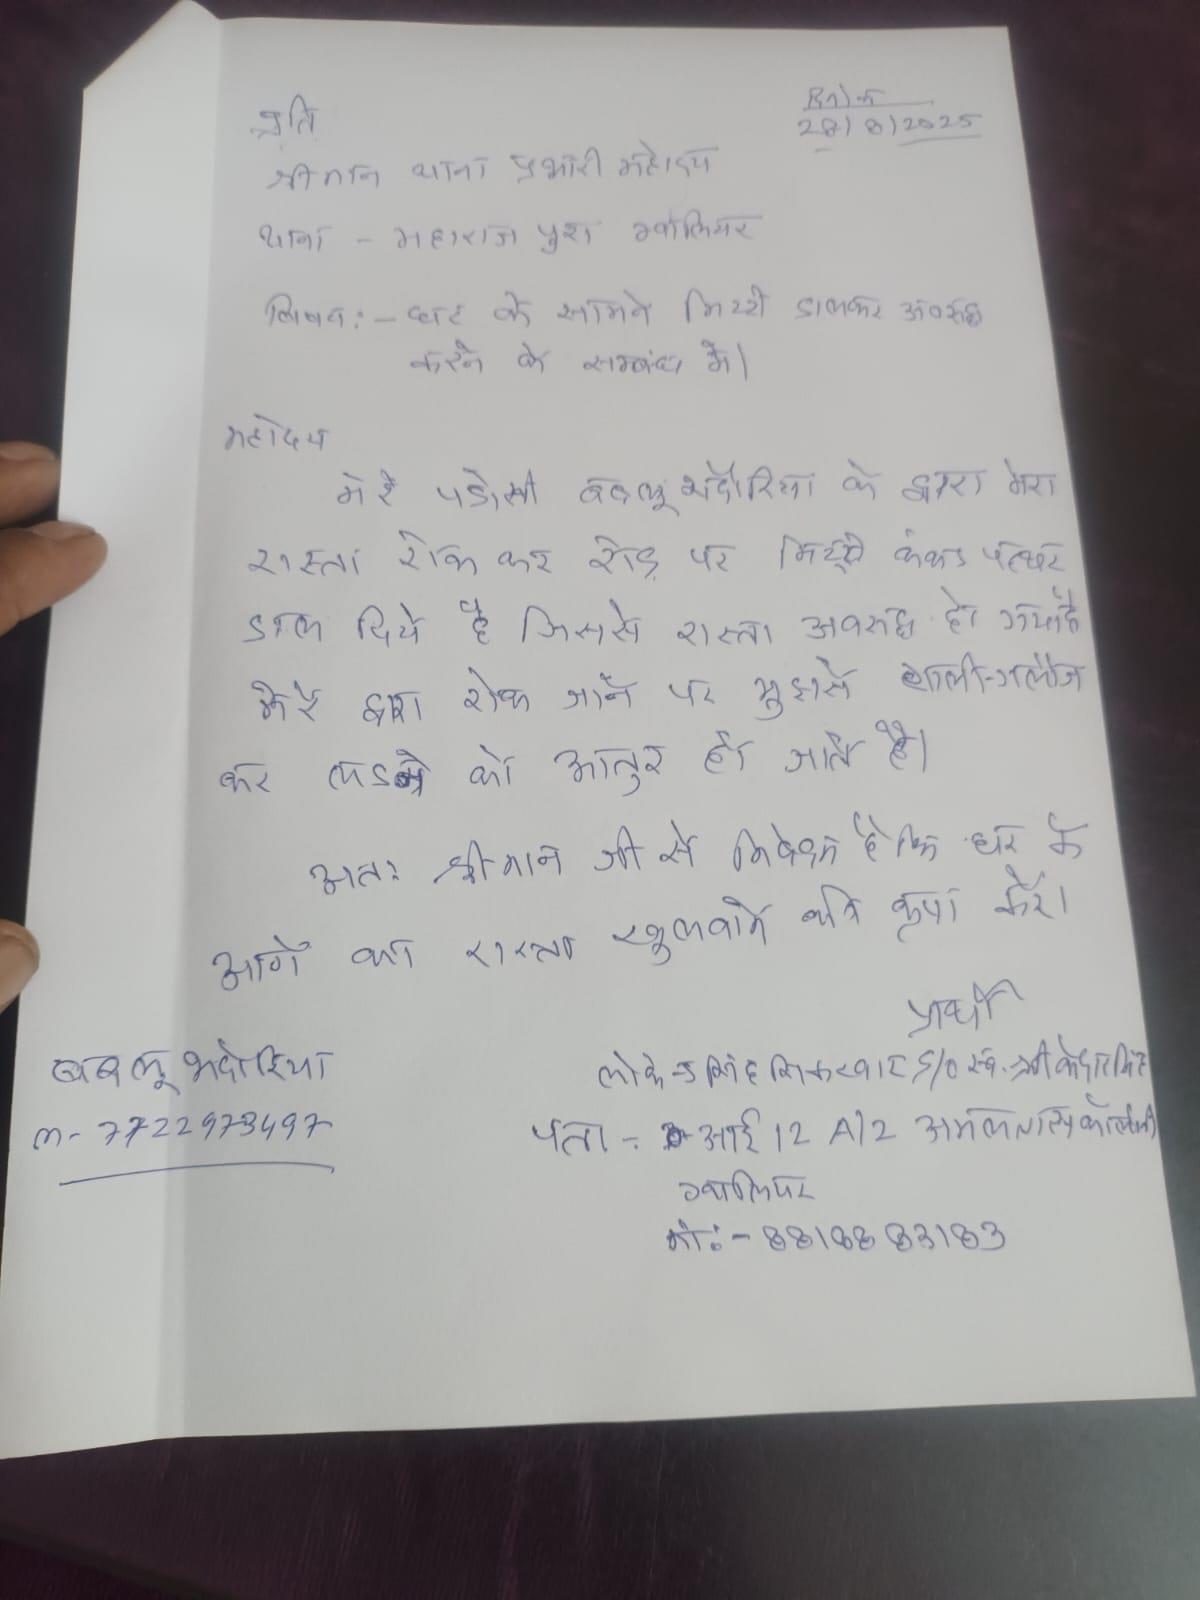 प्रति
दिनांक
28/8/2025
श्रीमान थाना प्रभारी महोदय
थाना - महाराज पुरा ग्वालियर
विषय:- घर के सामने मिट्टी डालकर अवरुद्ध
करने के सम्बंध में।
महोदय
मेरे पडोसी बबलू भदौरिया के द्वारा मेरा
रास्ता रोक कर रोड़ पर मिट्टी कंकड पत्थर
डाल दिये है जिससे रास्ता अवरुद्ध हो गया है
मेरे द्वारा रोके जाने पर मुझसे गाली-गलौज
कर लडने को आतुर हो जाते है।
अतः श्रीमान जी से निवेदन है कि घर के
आगे का रास्ता खुलवाने की कृपा करें।
प्रार्थी
लोकेन्द्र सिंह सिकरवार S/O स्व. श्री केदार सिंह
पता - आई 12 A/2 अमलतास कॉलोनी
ग्वालियर
मो:- 8818883183
बबलू भदोरिया
m- 7722973497